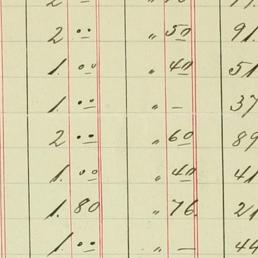 2 00 " 50 91
1. 00 " 40 51
1. 00 " — 37
2 00 " 60 89
1. 00 " 40 41
1. 80 " 76. 21
1. 00 " — 44